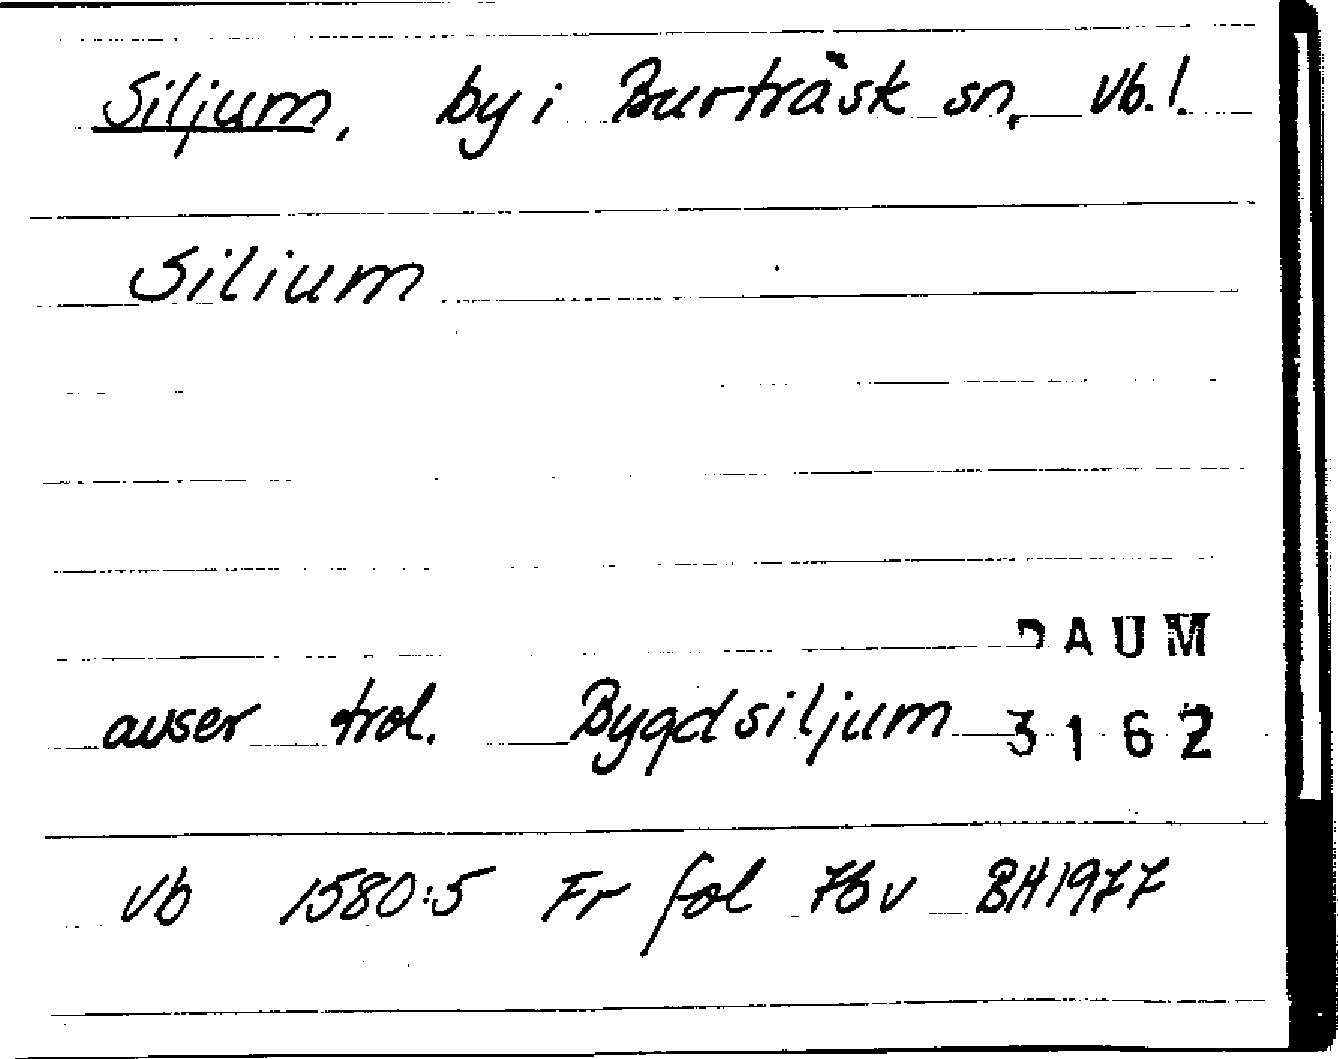 Siljum, by i Burträsk sn, Vb. l.
Silium
DAUM
avser trol. Bygdsiljum 3162
Vb 1580:5 Fr fol 76 v BH 1977